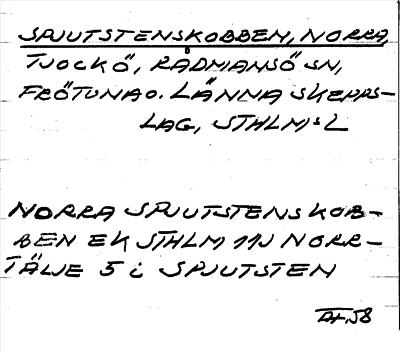 SPJUTSTENSKOBBEN, NORRA,
TJOCKÖ, RÅDMANSÖ SN,
FRÖTUNA O. LÄNNA SKEPPS-
LAG, STHLMS L
NORRA SPJUTSTENSKOB-
BEN EK STHLM 11J NORR-
TÄLJE 5 i SPJUTSTEN